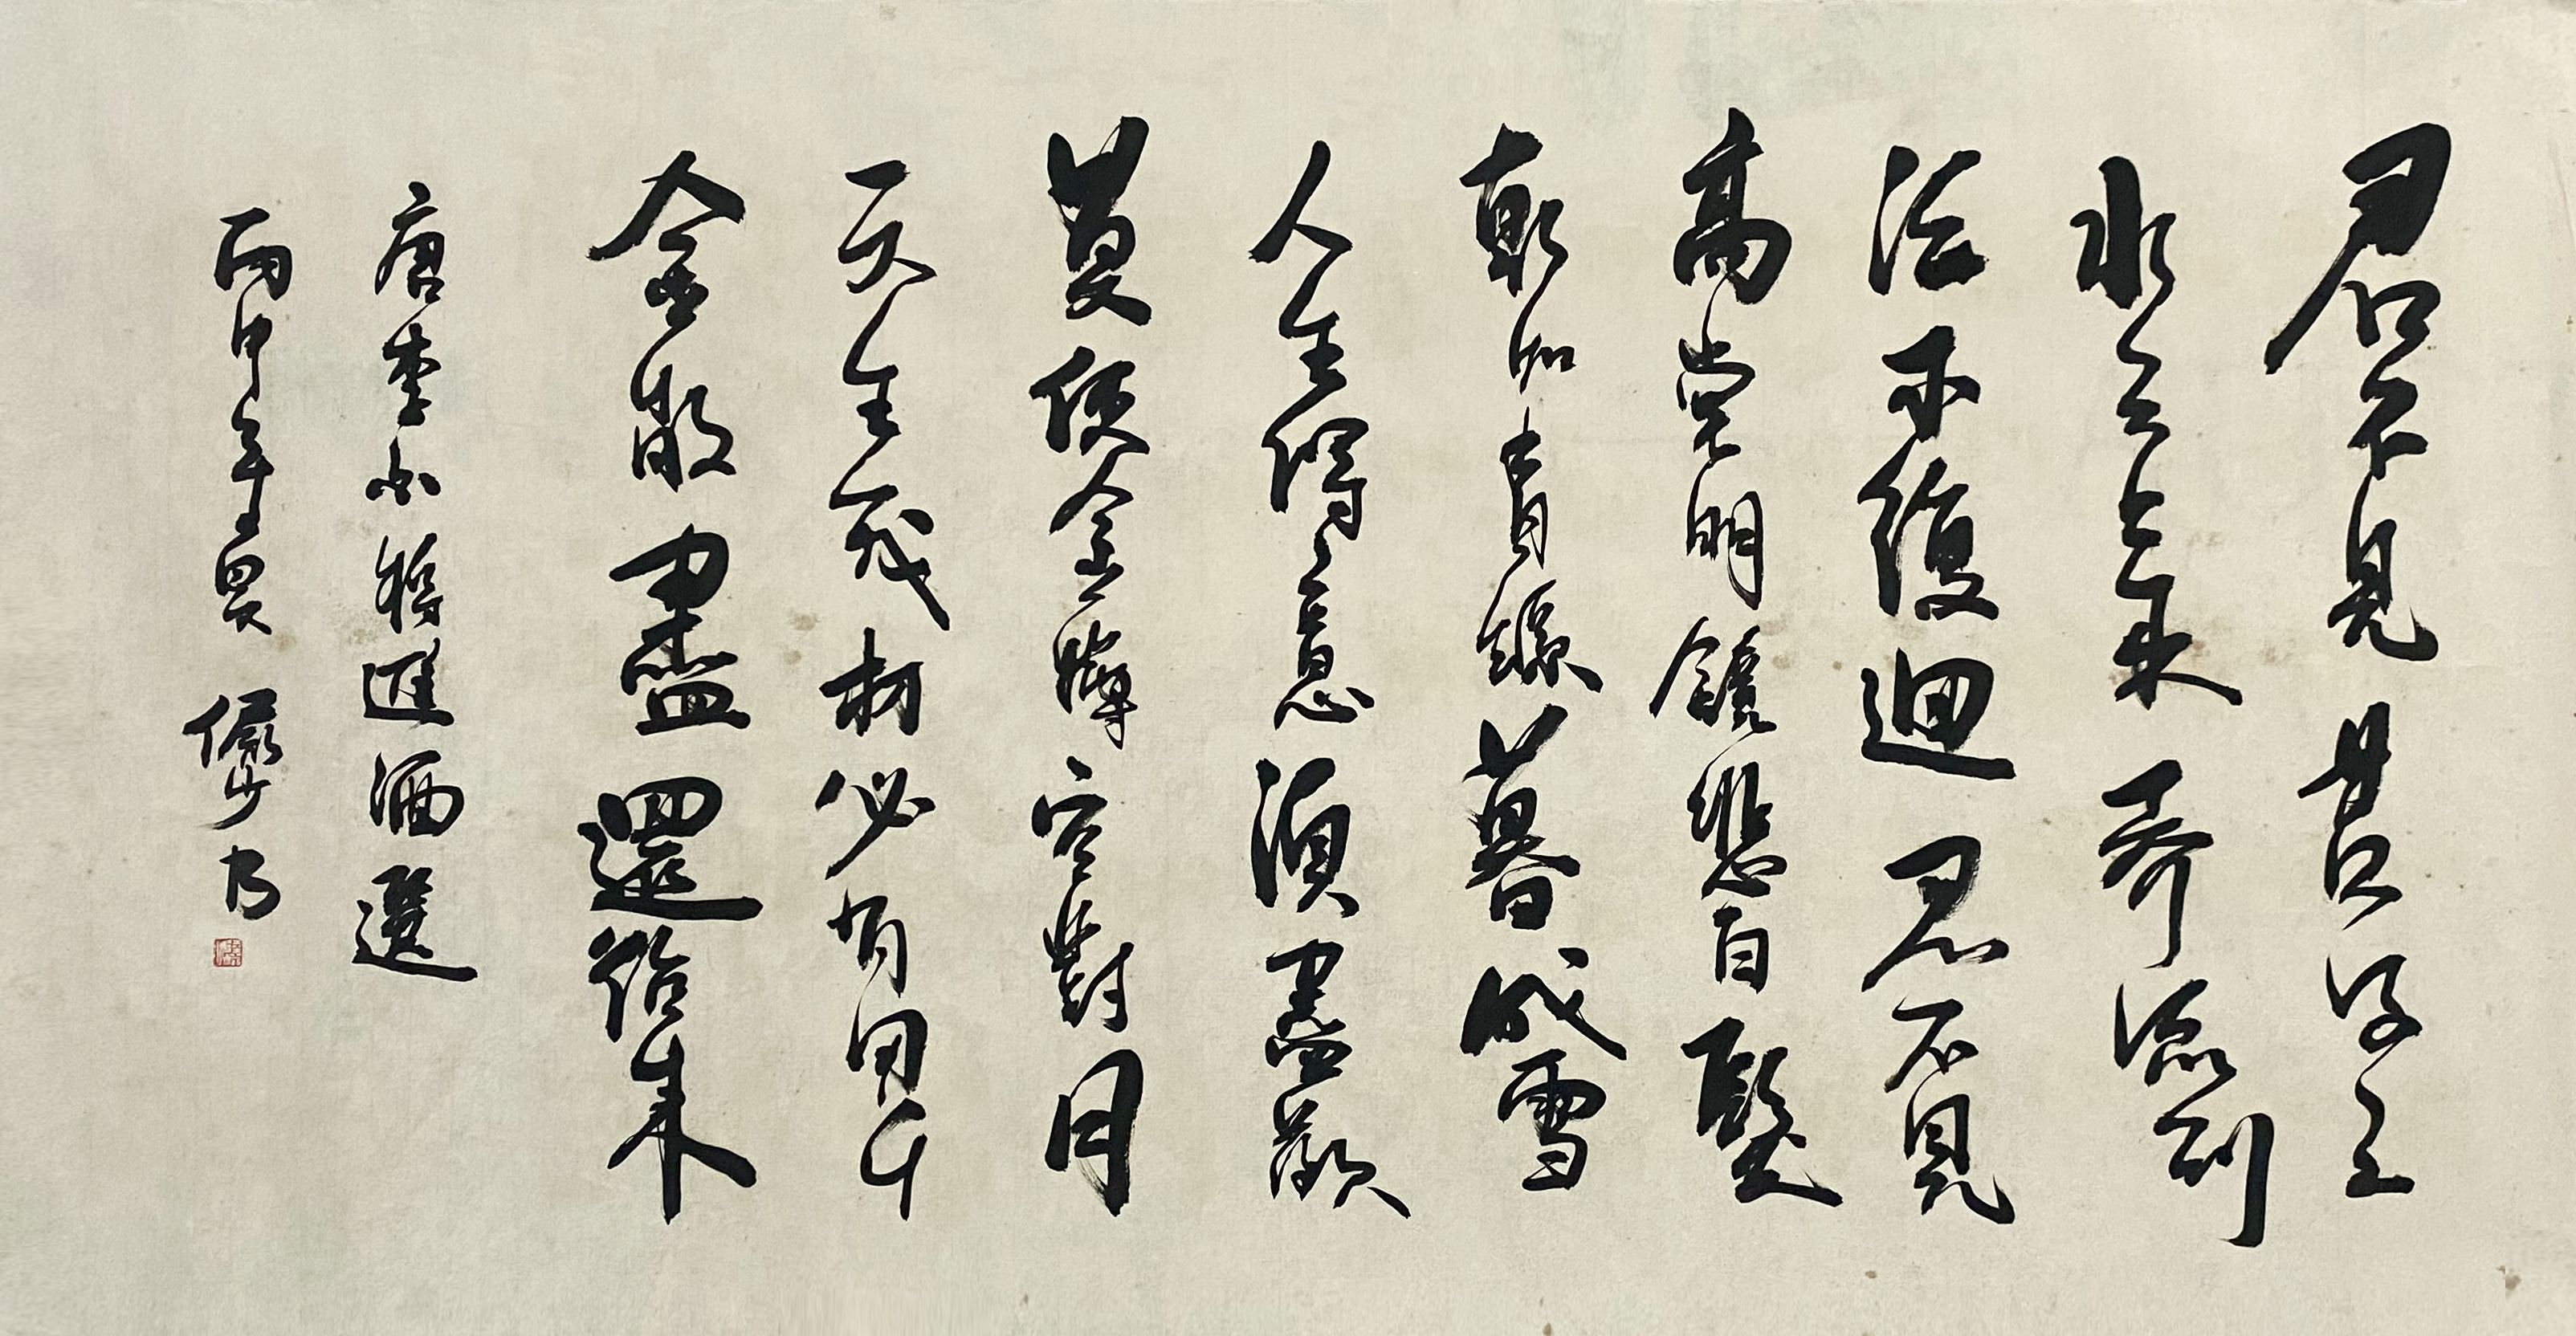 君不見黃河之
水天上來奔流到
海不復迴君不見
高堂明鏡悲白髮
朝如青絲暮成雪
人生得意須盡歡
莫使金樽空對月
天生我材必有用千
金散盡還復來
唐李白將進酒選
丙申年 儼少